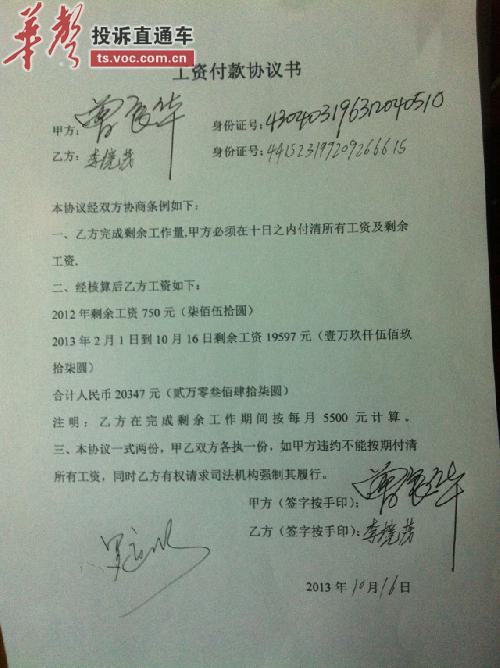 华声 投诉直通车
ts.voc.com.cn
工资付款协议书
甲方: 身份证号:430403196312040510
乙方: 李境茂 身份证号:
本协议经双方协商条例如下:
一、乙方完成剩余工作量,甲方必须在十日之内付清所有工资及剩余
工资.
二、经核算后乙方工资如下:
2012年剩余工资 750 元(柒佰伍拾圆)
2013年2月1日到10月16日剩余工资 19597 元(壹万玖仟伍佰玖
拾柒圆)
合计人民币 20347 元(贰万零叁佰肆拾柒圆)
注明:乙方在完成剩余工作期间按每月 5500 元计算。
三、本协议一式两份,甲乙双方各执一份,如甲方违约不能按期付清
所有工资,同时乙方有权请求司法机构强制其履行。
甲方(签字按手印):
乙方(签字按手印): 李境茂
2013年10月16日